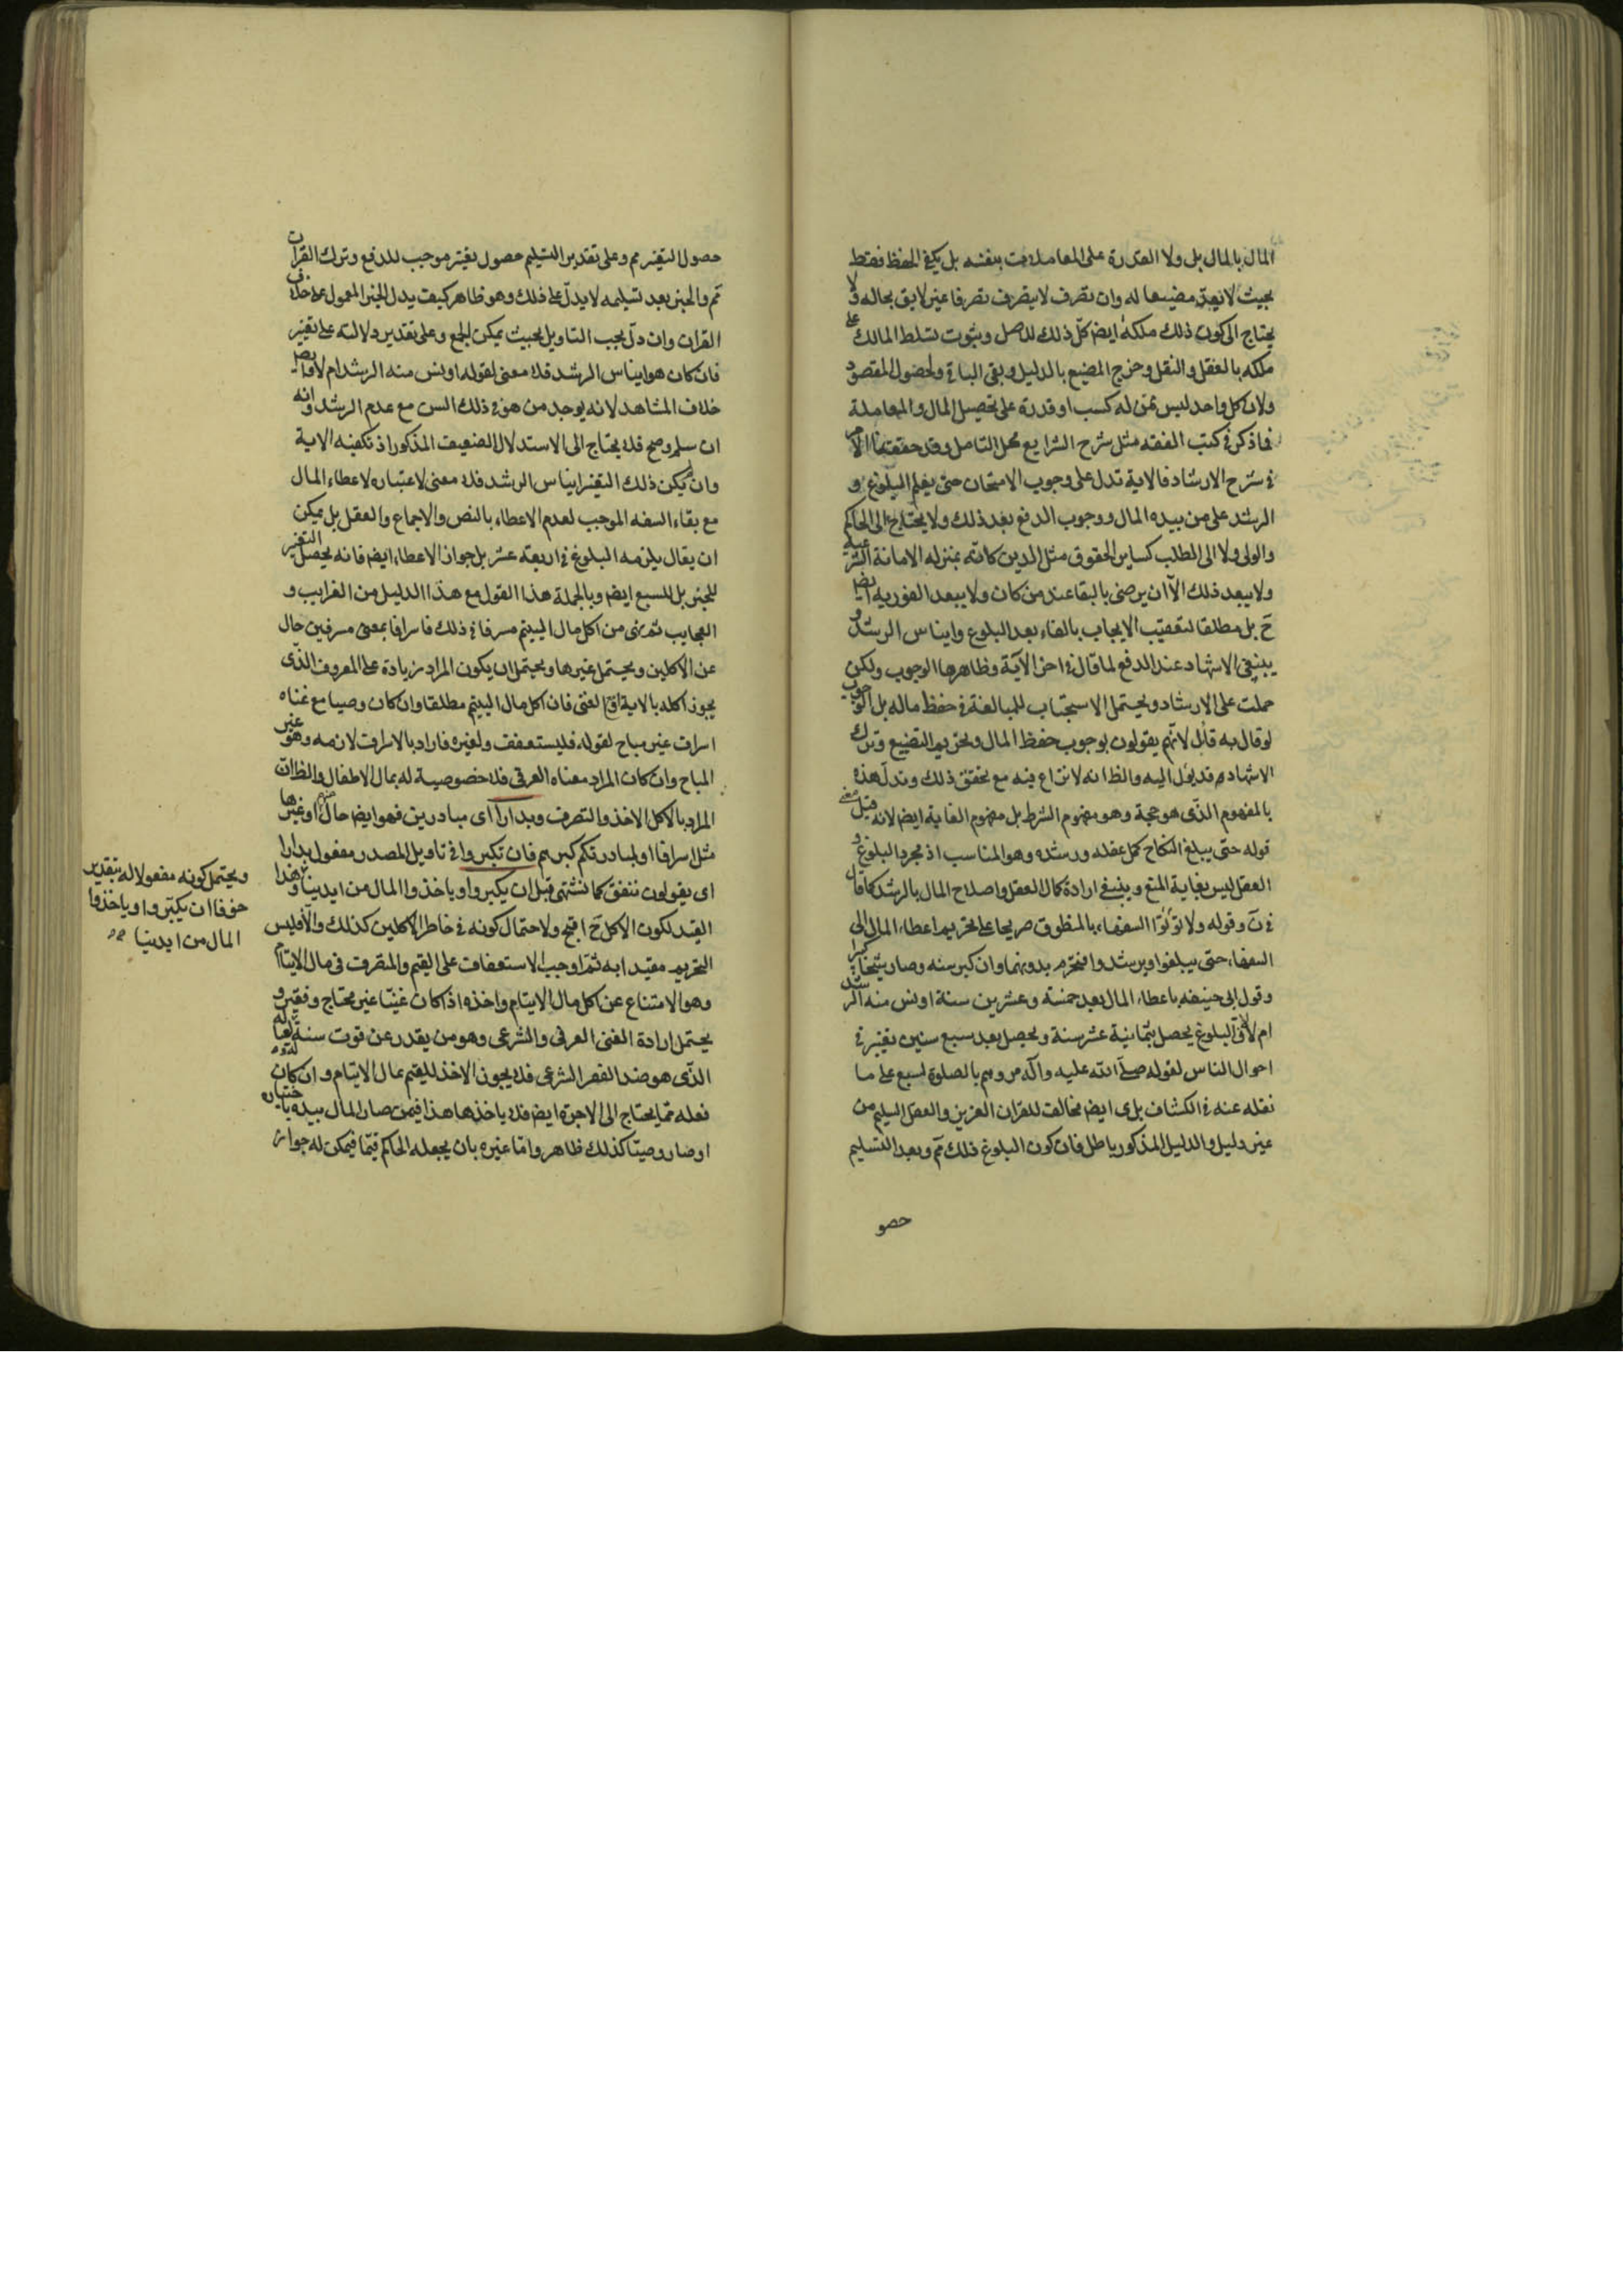 المال بالمال بل ولا القدرة على المعاملات بنفسه بل يكفي الحفظ فقط
بحيث لا يعد مضيعا له وان تصرف لا يتصرف تصرفا غير لايق بحاله ولا
يحتاج الى كون ذلك ملكه ايضا كل ذلك للاصل وثبوت تسلط المالك على
ملكه بالعقل والنقل وخرج المضيع بالدليل وبقى الباقي ولحصول المقصود
ولان كل واحد ليس ممن له كسب او قدرة على تحصيل المال والمعاملة
فما ذكر في كتب الفقه مثل شرح الشرايع محل التامل وقد حققنا الامر
في شرح الارشاد فالاية تدل على وجوب الامتحان حتى يعلم البلوغ و
الرشد على من بيده المال ووجوب الدفع بعد ذلك ولا يحتاج الى الحاكم
والولى ولا الى المطلب كساير الحقوق مثل الدين كانه بمنزله الامانة الشرعية
ولا يبعد ذلك الا ان يرضى بالبقا عند من كان ولا يبعد الفورية ايضا
ح بل مطلقا لتعقيب الايجاب بالفاء بعد البلوغ وايناس الرشد و
ينبغي الاشهاد عند الدفع لما قال في اخر الآية وظاهرها الوجوب ولكن
حملت على الارشاد ويحتمل الاستحباب للمبالغة في حفظ ماله بل الوجوب
لو قال به قائل لانهم يقولون بوجوب حفظ المال وتحريم التضييع وترك
الاشهاد قد يؤل اليه والظ انه لا نزاع فيه مع تحقق ذلك وتدل هذه
بالمفهوم الذى هو حجة وهو مفهوم الشرط بل مفهوم الغاية ايضا لانه قيل معنى
قوله حتى يبلغ النكاح كمل عقله ورشده وهو المناسب اذ مجرد البلوغ و
العقل ليس بغاية المنع وينبغي ارادة كمال العقل واصلاح المال بالرشد كما قال
في ن وقوله ولا تؤتوا السفهاء بالمنطوق صريحا على تحريم اعطاء المال الى
السفهاء حتى يبلغوا ويرشدوا فتحرم بدونهما وان كبر سنه وصار شيخا كبيرا
وقول ابى حنيفه باعطاء المال بعد خمسة وعشرين سنة اونس منه الرشد
ام لا لان البلوغ يحصل بثمانية عشر سنة ويحصل بعد سبع سنين تغير في
احوال الناس لقوله صلى الله عليه وآله مروهم بالصلوة لسبع على ما
نقله عنه في الكشاف بلى ايضا مخالف للقران العزيز والعقل السليم من
غير دليل والدليل المذكور باطل فان كون البلوغ ذلك مم وبعد التسليم
حصو
حصول التغير مم وعلى تقدير التسليم حصول تغير موجب للدفع وترك القران
مم والخبر بعد تسليمه لا يدل على ذلك وهو ظاهر كيف يدل الخبر المعمول على خلاف
القران وان دل يجب التاويل بحيث يمكن الجمع وعلى تقدير دلالته على تغير
فان كان هو ايناس الرشد فلا معنى لقوله اونس منه الرشد ام لا وايضا
خلاف المشاهد لانه يوجد من هو في ذلك السن مع عدم الرشد وانه
ان سلم وصح فلا يحتاج الى الاستدلال الضعيف المذكور اذ تكفيه الاية
وان لم يكن ذلك التغير ايناس الرشد فلا معنى لاعتباره لاعطاء المال
مع بقاء السفه الموجب لعدم الاعطاء بالنص والاجماع والعقل بل يمكن
ان يقال يلزمه البلوغ في اربعة عشر بل جواز الاعطاء ايضا فانه يحصل التغير
للخبر بل للسبع ايضا وبالجملة هذا القول مع هذا الدليل من الغرايب و
العجايب ثم نهى من اكل مال اليتيم مسرفا في ذلك فاسرافا بمعنى مسرفين حال
عن الاكلين ويحتمل غيرها ويحتمل ان يكون المراد زيادة على المعروف الذى
يجوز اكله بالاية او الغنى فان اكل مال اليتيم مطلقا وان كان وصيا مع غناه
اسراف غير مباح لقوله فليستعفف ولغيره فاراد بالاسراف لازمه وهو غير
المباح وان كان المراد معناه العرفى فلا خصوصية له بمال الاطفال والظ ان
المراد بالاكل الاخذ والتصرف وبدارا اى مبادرين فهو ايضا حال منهم او غيرها
مثل اسرافا او لمبادرتكم كبرهم فان تكبروا في تاويل المصدر مفعول بدارا
اى يقولون ننفق كما نشتهى قبل ان يكبروا وياخذوا المال من ايدينا وهذا
القيد لكون الاكل ح اقبح ولاحتمال كونه في خاطر الاكلين كذلك والا فليس
التحريم مقيدا به ثم اوجب الاستعفاف على القيم والمتصرف في مال الايتام
وهو الامتناع عن اكل مال الايتام واخذه اذا كان غنيا غير محتاج وفقير و
يحتمل ارادة الغنى العرفى والشرعى وهو من يقدر عن قوت سنة له ولعياله
الذى هو ضد الفقر الشرعى فلا يجوز الاخذ للقيم بمال الايتام وان كان
فعله مما يحتاج الى الاجرة ايضا فلا ياخذها هذا فيمن صار المال بيده باختياره
او صار وصيا كذلك ظاهر واما غيره بان يجعله الحاكم قيما فيمكن له جواز
ويحتمل كونه مفعولا له بتقدير
خوفا ان يكبروا وياخذوا
المال من ايدينا